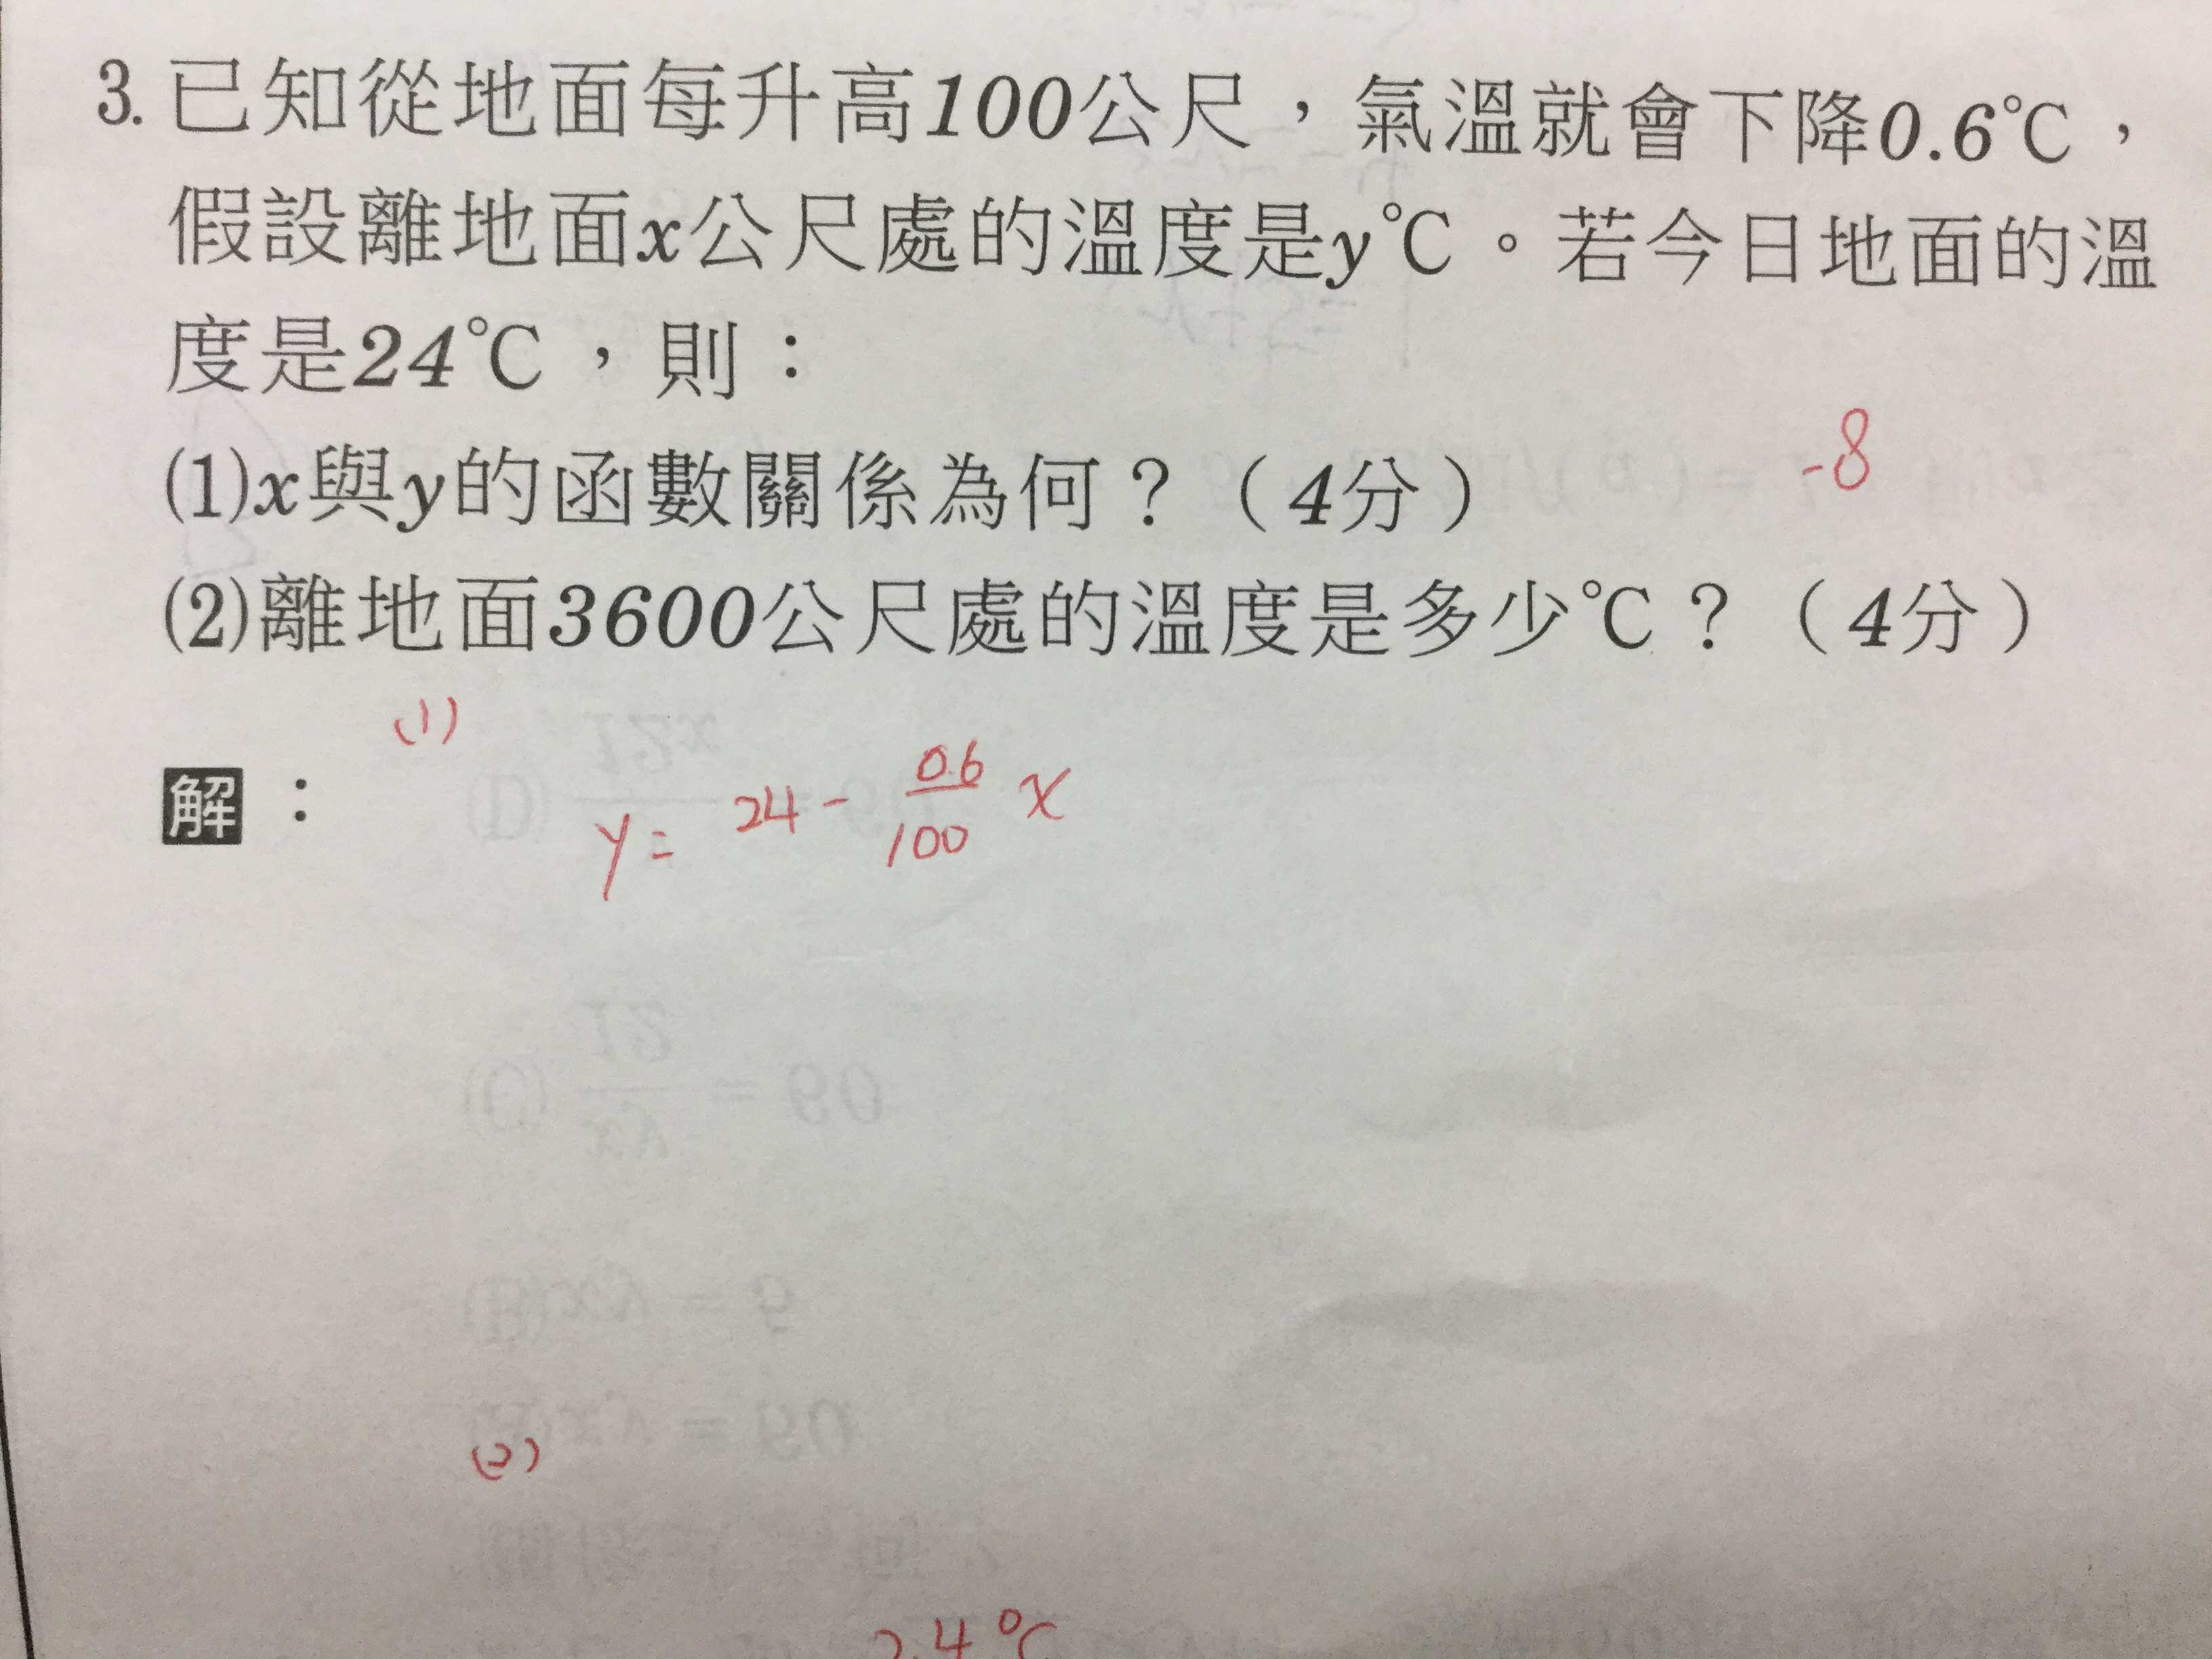 3. 已知從地面每升高100公尺，氣溫就會下降0.6℃，
假設離地面x公尺處的溫度是y℃。若今日地面的溫
度是24℃，則：
(1)x與y的函數關係為何？（4分）
-8
(2)離地面3600公尺處的溫度是多少℃？（4分）
(1)
解： y = 24 - 0.6/100 x
(2)
2.4℃